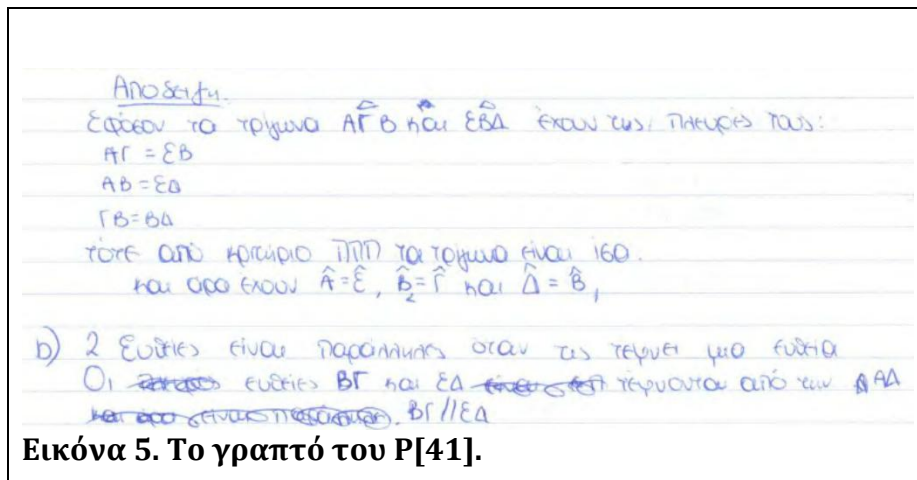 Απόδειξη.
Εφόσον τα τρίγωνα ΑΓ̂Β και ΕΒ̂Δ έχουν τις πλευρές τους:
ΑΓ = ΕΒ
ΑΒ = ΕΔ
ΓΒ = ΒΔ
τότε από κριτήριο ΠΠΠ τα τρίγωνα είναι ίσα.
και άρα έχουν Â = Ε̂, Β̂₂ = Γ̂ και Δ̂ = Β̂₁
b) 2 ευθείες είναι παράλληλες όταν τις τέμνει μια ευθεία
Οι ευθείες ΒΓ και ΕΔ τέμνονται από την ΑΔ
ΒΓ//ΕΔ
Εικόνα 5. Το γραπτό του P[41].